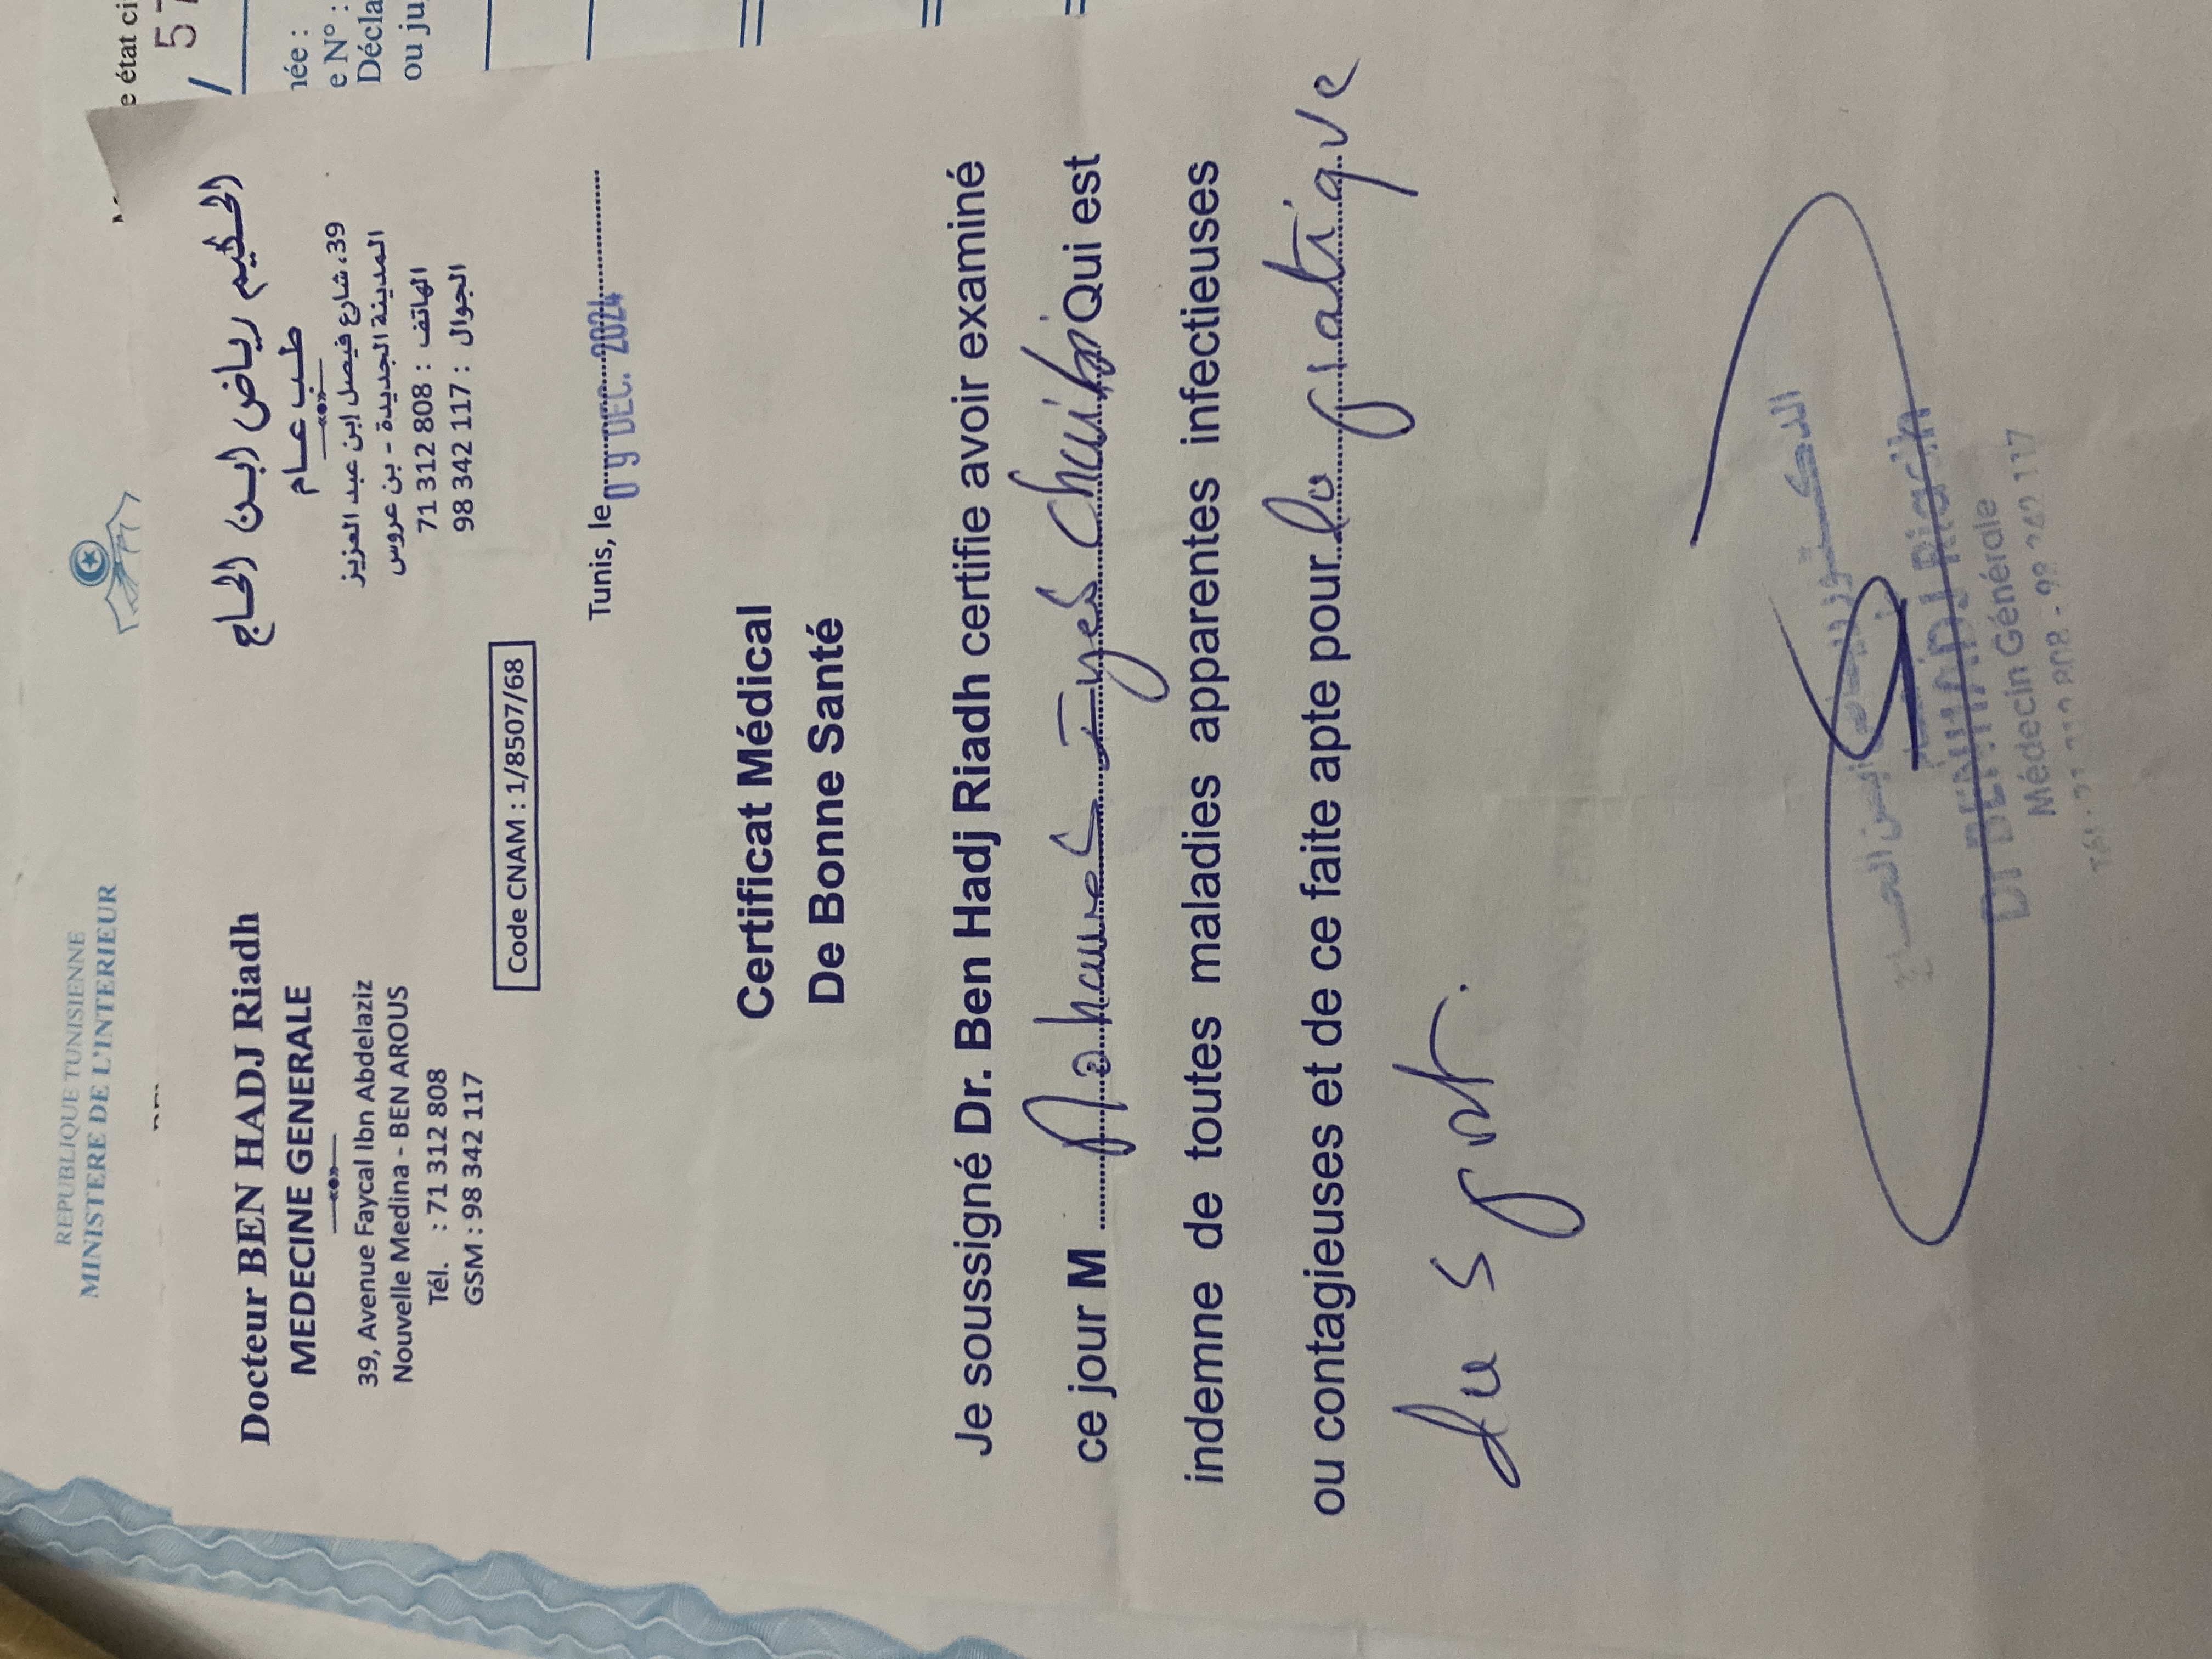 REPUBLIQUE TUNISIENNE
MINISTERE DE L'INTERIEUR
e état ci
57
/
née :
e N° :
Décla
ou ju
Docteur BEN HADJ Riadh
MEDECINE GENERALE
39, Avenue Faycal Ibn Abdelaziz
Nouvelle Medina - BEN AROUS
Tél. : 71 312 808
GSM : 98 342 117
الحكيم رياض ابن الحاج
طب عام
39، شارع فيصل إبن عبد العزيز
المدينة الجديدة - بن عروس
الهاتف : 808 312 71
الجوال : 117 342 98
Code CNAM : 1/8507/68
Tunis, le 09 DEC. 2024
Certificat Médical
De Bonne Santé
Je soussigné Dr. Ben Hadj Riadh certifie avoir examiné
ce jour M Iyes Chuibi Qui est
indemne de toutes maladies apparentes infectieuses
ou contagieuses et de ce faite apte pour la pratique
du sport.
الدكتور رياض ابن الحاج
Dr BEN HADJ Riadh
Médecin Générale
Tél : 71 312 808 - 98 342 117